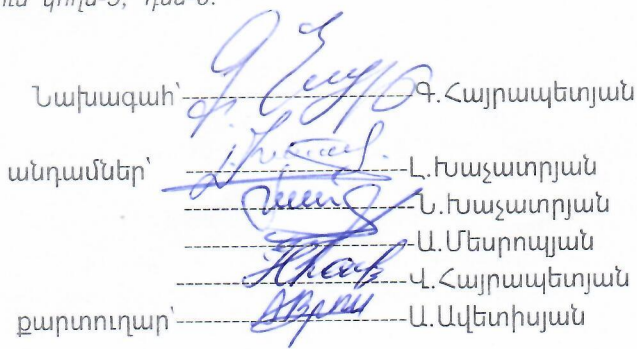 Նախագահ՝ Գ.Հայրապետյան
անդամներ՝ Լ.Խաչատրյան
Ն.Խաչատրյան
Ա.Մեսրոպյան
Վ.Հայրապետյան
քարտուղար՝ Ա.Ավետիսյան